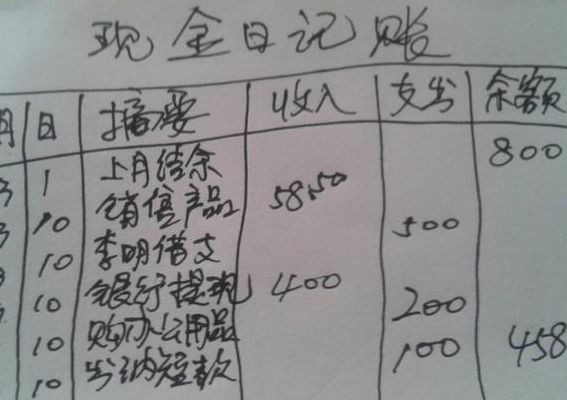 现金日记账
月 日 摘要 收入 支出 余额
3 1 上月结余 800
3 10 销售产品 5850
10 李明借支 500
10 银行提现 400
10 购办公用品 200
10 出纳短款 100 458